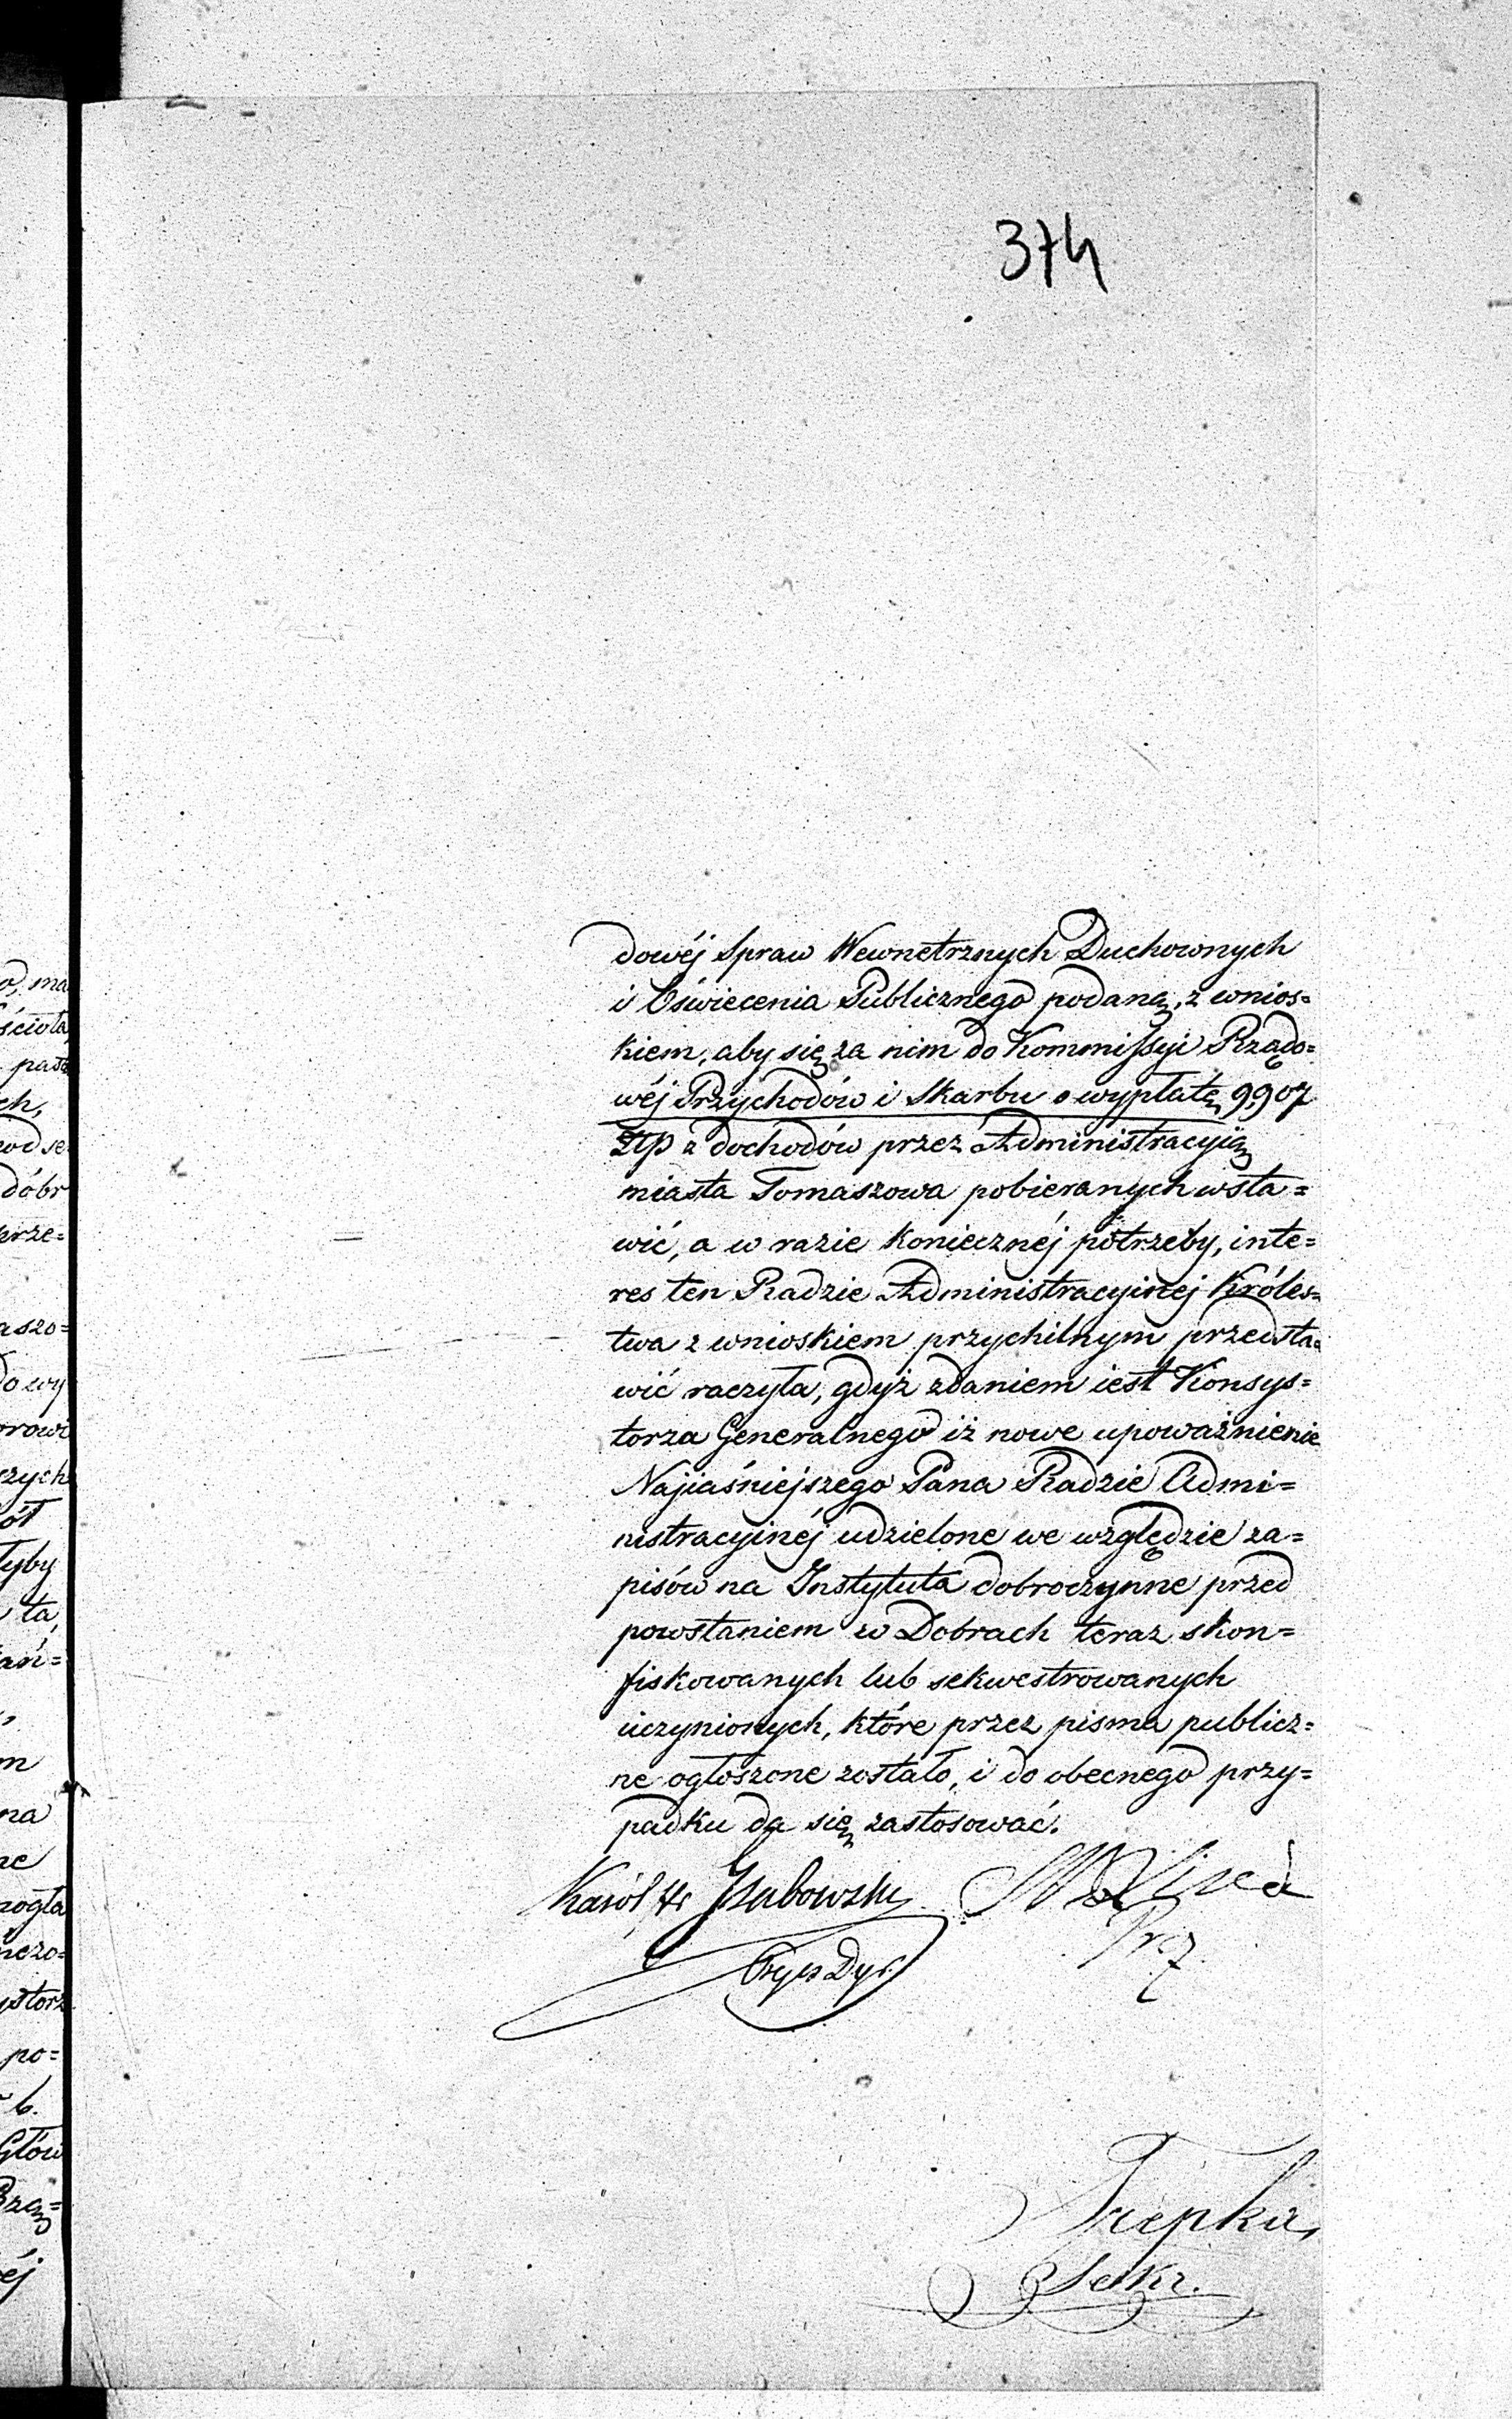 374
dowéj Spraw Wewnetrznych Duchownych
i Oświecenia Publicznego podaną, z wnios=
kiem, aby się za nim do Kommissyi Rządo=
wéj Przychodów i Skarbu o wypłatę 9907
Złp z dochodów przez Administracyią
miasta Tomaszowa pobieranych wsta=
wić, a w razie koniecznéj potrzeby, inte=
res ten Radzie Administracyinej Króles=
twa z wnioskiem przychilnym przedsta=
wić raczyła, gdyż zdaniem iest Konsys=
torza Generalnego iż nowe upoważnienie
Najiaśniejszego Pana Radzie Admi=
nistracyinéj udzielone we względzie za=
pisów na Instytuta dobroczynne przed
powstaniem w Dobrach teraz skon=
fiskowanych lub sekwestrowanych
uczynionych, które przez pisma publicz=
ne ogłoszone zostało, i do obecnego przy=
padku da się zastosować.
Karól
Trepka
Sekr.